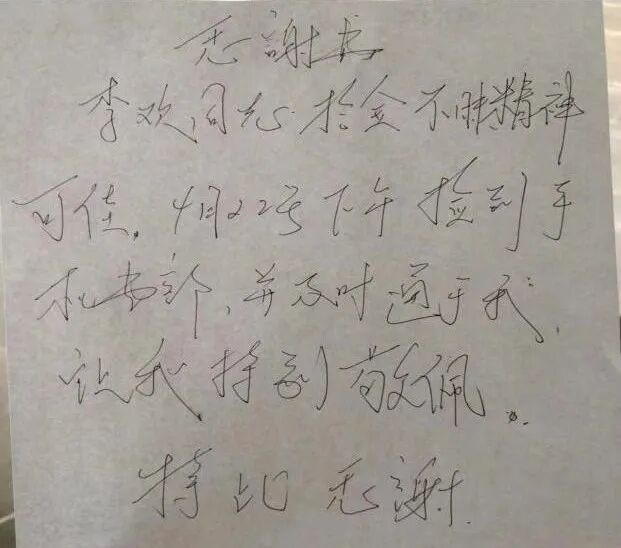 感謝书
李欢同志拾金不昧精神
可佳。4月22号下午捡到手
机壹部,并及时通于我,
让我得到敬佩。
特此感謝